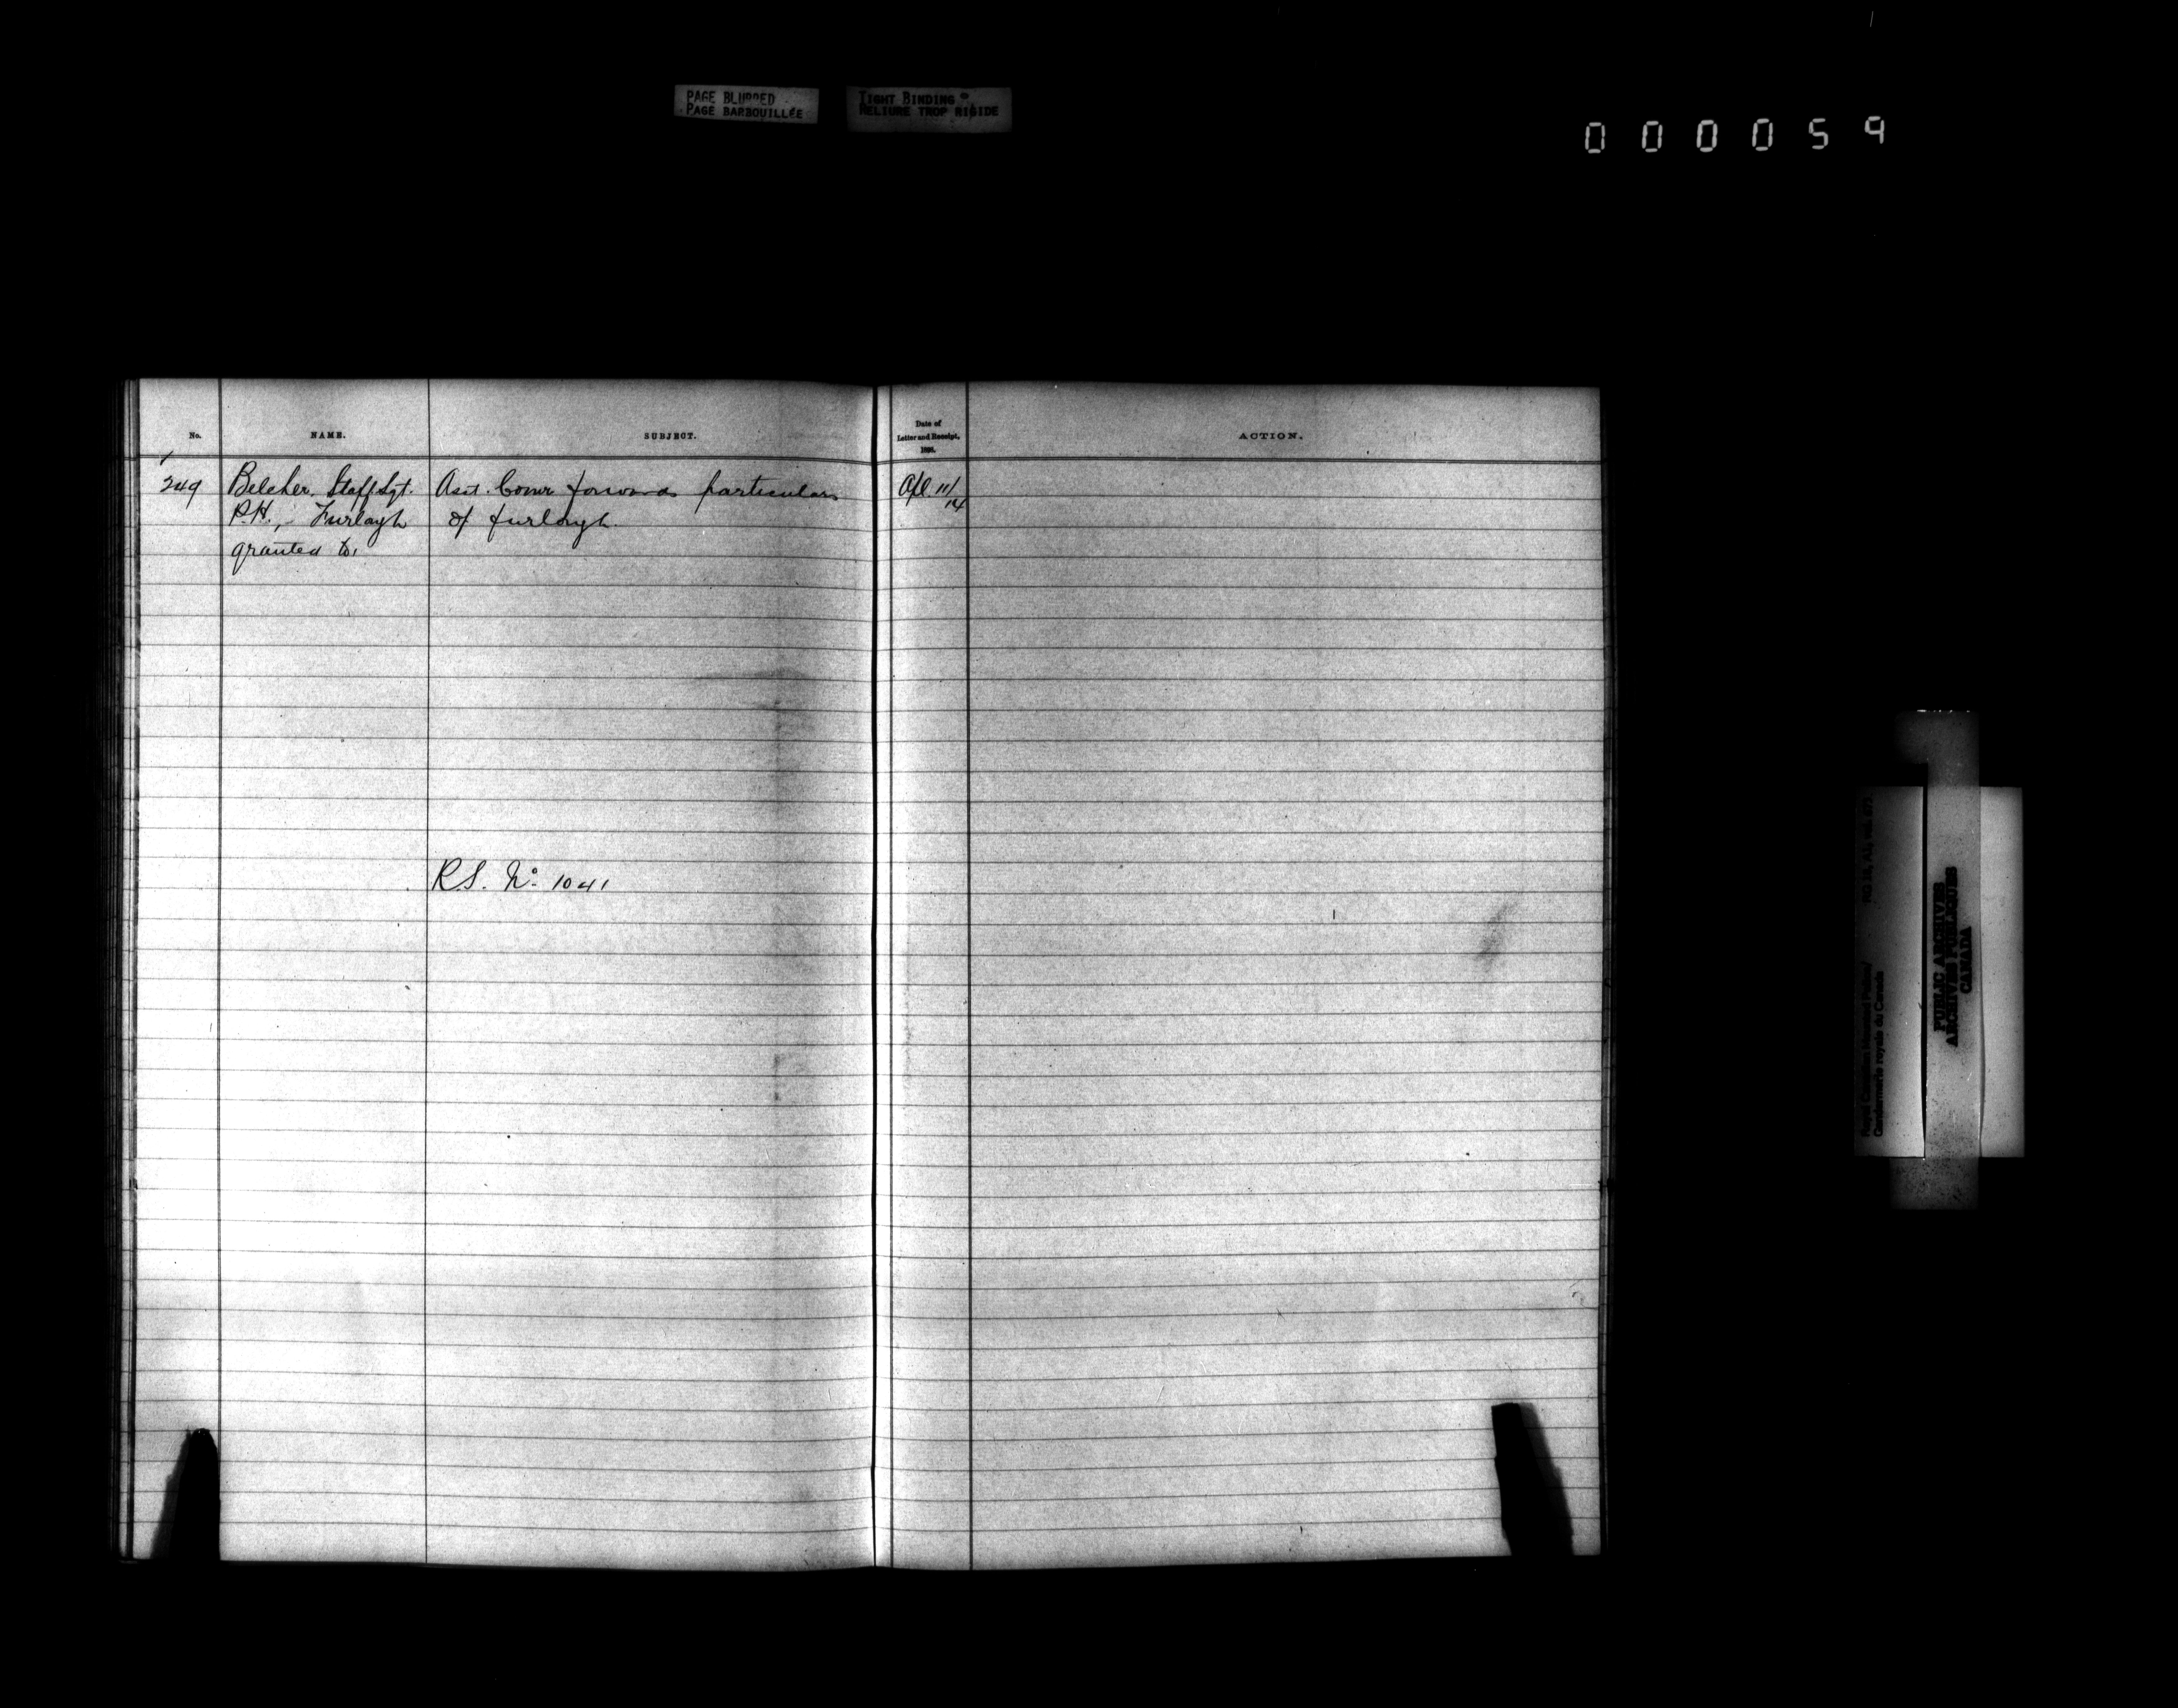 PAGE BLURRED
PAGE BARBOUILLÉE
TIGHT BINDING
RELIURE TROP RIGIDE
000059
No.
NAME.
SUBJECT.
Date of
Letter and Receipt,
ACTION.
249
Belcher, Staff Sgt.
P.H., Furlough
granted to.
Asst. Comr forwards particulars
of furlough.
Apl. 11/14
R.S. No. 1041
Royal Canadian Mounted Police/
Gendarmerie royale du Canada
PUBLIC ARCHIVES
ARCHIVES PUBLIQUES
CANADA